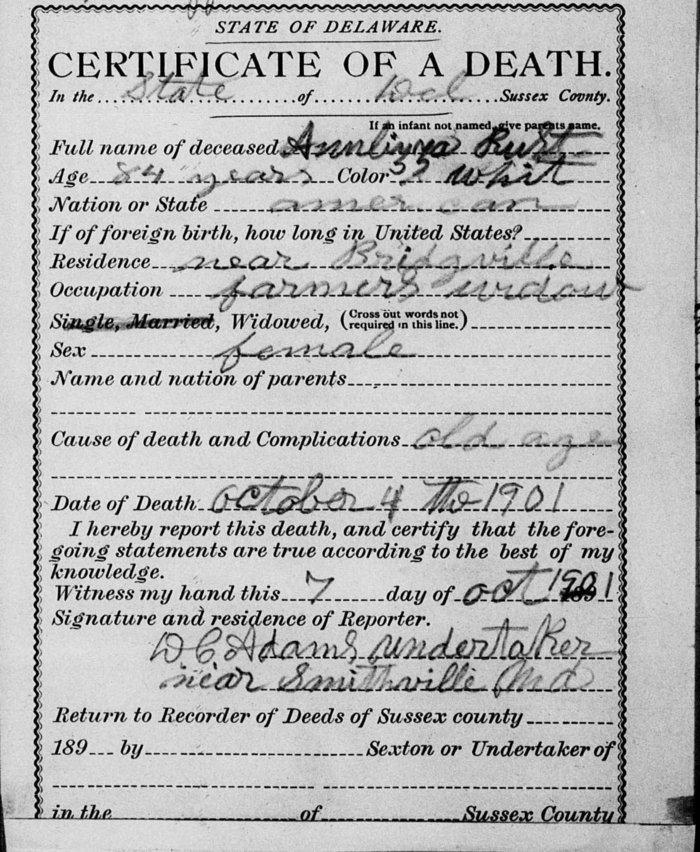 STATE OF DELAWARE.
CERTIFICATE OF A DEATH.
In the State of Del Sussex County.
If an infant not named, give parents name.
Full name of deceased
Age 84 years Color whit
Nation or State american
If of foreign birth, how long in United States?
Residence near Bridgville
Occupation farmers widow
Single, Married, Widowed, (Cross out words not required in this line.)
Sex female
Name and nation of parents
Cause of death and Complications old age
Date of Death october 4 th 1901
I hereby report this death, and certify that the fore-
going statements are true according to the best of my
knowledge.
Witness my hand this 7 day of oct 1901
Signature and residence of Reporter.
D C Adams undertaker
near Smithville Md
Return to Recorder of Deeds of Sussex county
189 by Sexton or Undertaker of
in the of Sussex County